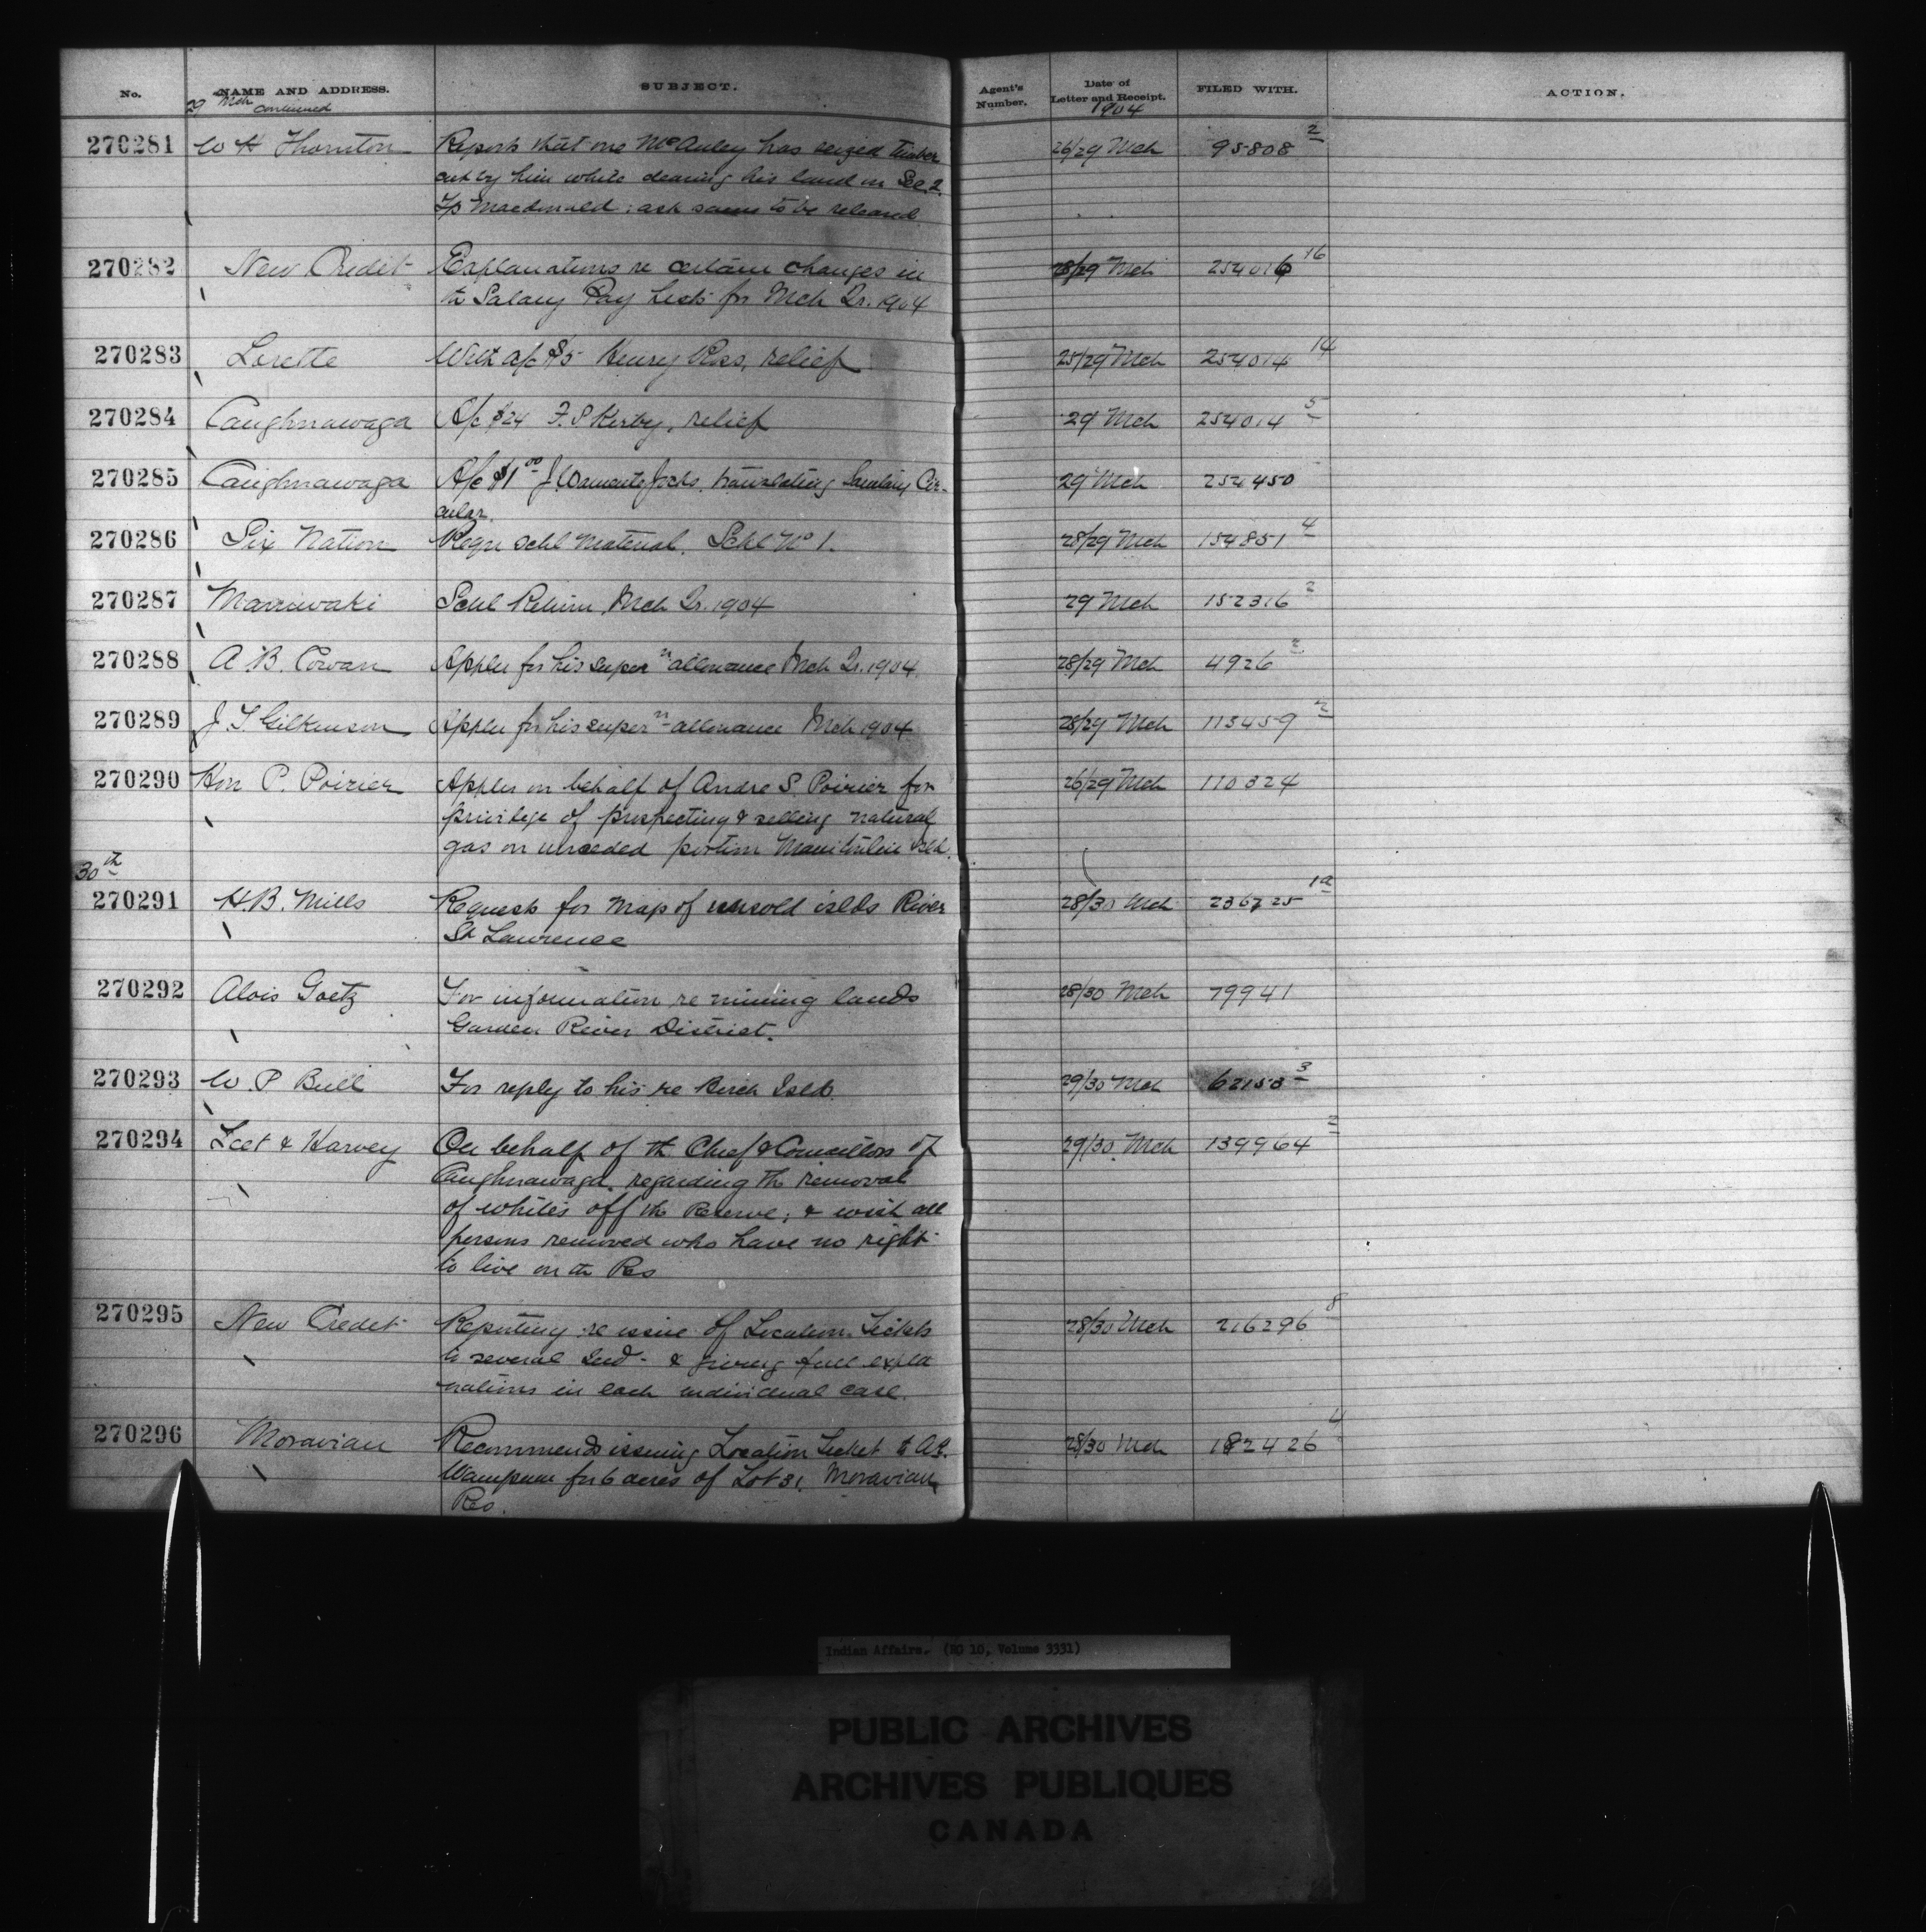 No. NAME AND ADDRESS. SUBJECT. Agent's Number. Date of Letter and Receipt. FILED WITH. ACTION.
29 Mch continued 1904
270281 W H Thornton Reports that one McAuley has seized timber 26/29 Mch 95808 2
cut by him while clearing his land in Sec. 2.
Tp Macdonald; ask same to be released
270282 New Credit Explanations re certain changes in 28/29 Mch 254016 16
th Salary Pay Lists for Mch Qr. 1904
270283 Lorette With a/c $5 Henry Ross, relief 25/29 Mch 254014 14
270284 Caughnawaga A/c $24 F. S Kerby, relief 29 Mch 254014 5
270285 Caughnawaga A/c $1 00 Jocks, translating Sanitary Cir- 29 Mch 254450
cular.
270286 Six Nation Requ Schl Material. Schl No 1. 28/29 Mch 154851 4
270287 Maniwaki Schl Return, Mch Qr. 1904 29 Mch 152316 2
270288 A. B. Cowan Applies for his super n allowance Mch Qr. 1904 28/29 Mch 4926 2
270289 J. T. Gilkinson Applies for his super n allowance Mch 1904 28/29 Mch 113459 2
270290 Hon P. Poirier Applies on behalf of Andre S. Poirier for 26/29 Mch 110324
privilege of prospecting & selling natural
gas on unceded portion Manitoulin Isld.
30th
270291 H. B. Mills Requests for map of unsold islds River 28/30 Mch 236725 1a
St Lawrence
270292 Alois Goetz For information re mining lands 28/30 Mch 79941
Garden River District.
270293 W. P Bull For reply to his re Birch Islds. 29/30 Mch 62153 3
270294 Leet & Harvey On behalf of th Chief & Councillors of 29/30 Mch 139964 2
Caughnawaga, regarding th removal
of whites off the Reserve; & wish all
persons removed who have no right
to live on th Res
270295 New Credit Reporting re issue of Location Tickets 28/30 Mch 216296 8
to several Ind- & giving full expla
nations in each individual case.
270296 Moravian Recommends issuing Location Ticket to 28/30 Mch 182426 4
Wampum for 6 acres of Lot 31, Moravian
Res.
Indian Affairs. (RG 10, Volume 3331)
PUBLIC ARCHIVES
ARCHIVES PUBLIQUES
CANADA